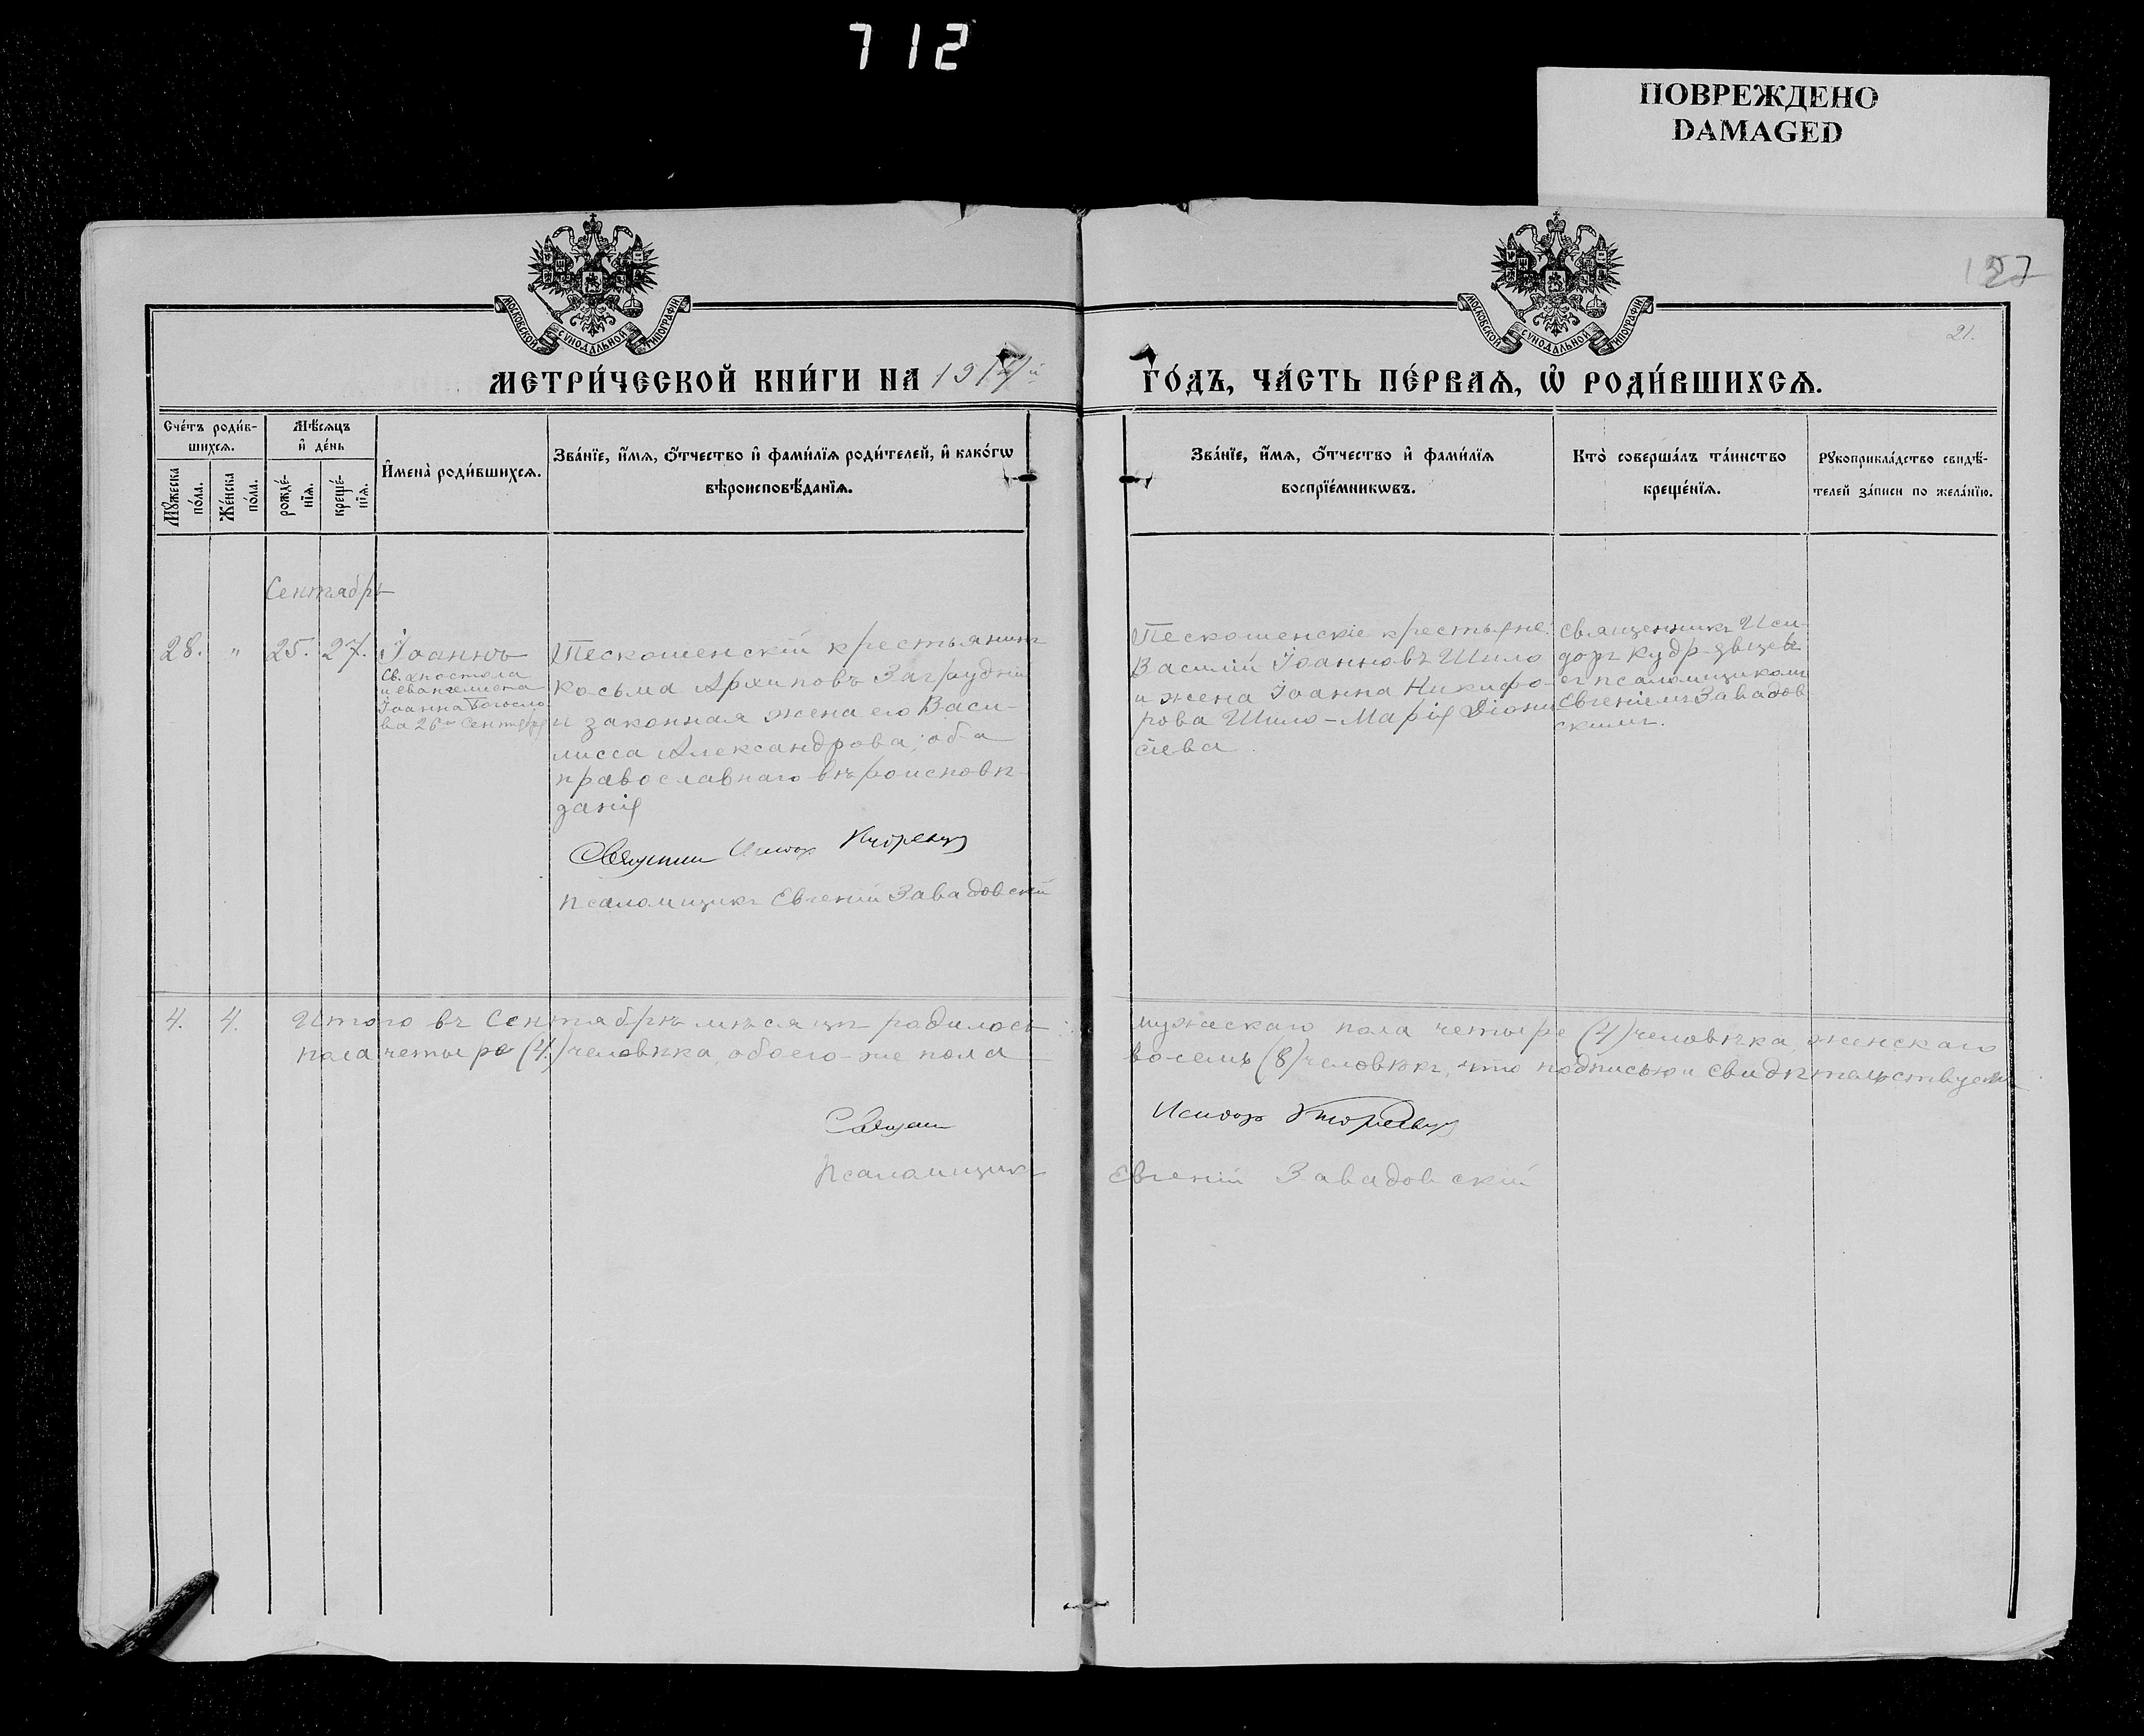 712
ПОВРЕЖДЕНО
DAMAGED
127
21.
МОСКОВСКОЙ СѴНОДАЛЬНОЙ ТИПОГРАФІИ
МОСКОВСКОЙ СѴНОДАЛЬНОЙ ТИПОГРАФІИ
МЕТРИ́ЧЕСКОЙ КНИ́ГИ НА 1914й
ГО́ДЪ, ЧА́СТЬ ПЕ́РВАѦ, Ѡ҆ РОДИ́ВШИХСѦ.
Сче́тъ роди́в-
шихсѧ.
Мꙋжеска
по́ла.
Же́нска
по́ла.
Мѣ́сѧцъ
и҆ де́нь
рожде́-
нїѧ.
креще́-
нїѧ.
И҆мена̀ роди́вшихсѧ.
Зва́нїе, и҆́мѧ, ѻ҆́тчество и҆ фами́лїѧ роди́телей, и҆ како́гѡ
вѣроисповѣ́данїѧ.
Зва́нїе, и҆́мѧ, ѻ҆́тчество и҆ фами́лїѧ
воспрїе́мникѡвъ.
Кто̀ соверша́лъ та́инство
креще́нїѧ.
Рꙋкоприкла́дство свидѣ́-
телей за́писи по жела́нїю.
Сентябрь
28. " 25. 27. Іоаннъ
Св. Апостола
и евангелиста
Іоанна Богосло
ва 26го Сентября
Пескошенскій крестьянинъ
Косьма Архиповъ Загрудній
и законная жена его Васи-
лисса Александрова; оба
православнаго вѣроисповѣ-
данія
Священникъ Исидоръ Кудрявцевъ
Псаломщикъ Евгеній Завадовскій
Пескошенскіе крестьяне:
Василій Іоанновъ Шило
и жена Іоанна Никифо-
рова Шило - Марія Діони
сіева.
Священникъ Иси-
доръ Кудрявцевъ
съ псаломщикомъ
Евгеніемъ Завадов
скимъ.
4. 4. Итого въ Сентябрѣ мѣсяцѣ родилось: мужескаго пола четыре (4) человѣка, женскаго
пола четыре (4) человѣка, обоего-же пола восемь (8) человѣкъ, что подписью и свидѣтельствуемъ
Священ Исидоръ Кудрявцевъ
Псаломщикъ Евгеній Завадовскій